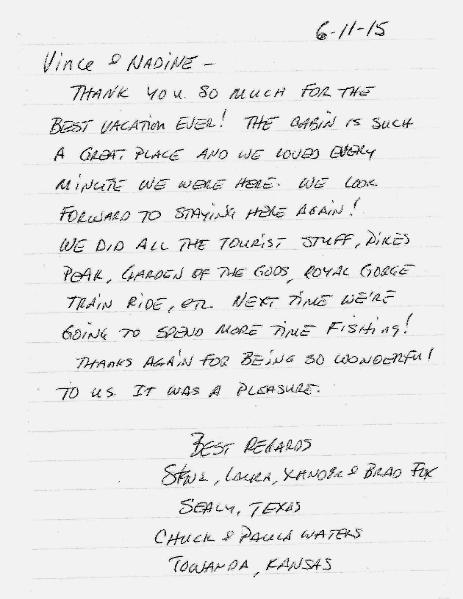 6-11-15
Vince & NADINE -
THANK YOU SO MUCH FOR THE
BEST VACATION EVER! THE CABIN IS SUCH
A GREAT PLACE AND WE LOVED EVERY
MINUTE WE WERE HERE. WE LOOK
FORWARD TO STAYING HERE AGAIN!
WE DID ALL THE TOURIST STUFF, PIKES
PEAK, GARDEN OF THE GODS, ROYAL GORGE
TRAIN RIDE, ETC. NEXT TIME WE'RE
GOING TO SPEND MORE TIME FISHING!
THANKS AGAIN FOR BEING SO WONDERFUL
TO US. IT WAS A PLEASURE.
BEST REGARDS
LAURA, XANDER & BRAD FOX
SEALY, TEXAS
CHUCK & PAULA WATERS
TOWANDA, KANSAS